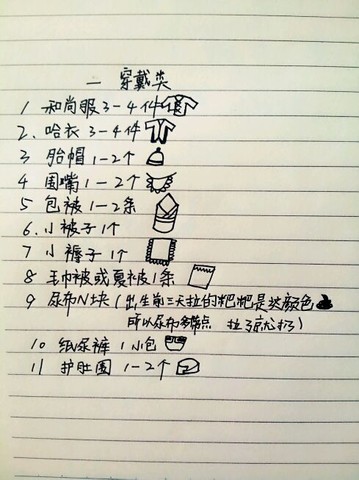 一 穿戴类
1 和尚服 3-4件
2. 哈衣 3-4件
3 胎帽 1-2个
4 围嘴 1-2个
5 包被 1-2条
6. 小被子 1个
7 小褥子 1个
8 毛巾被或裹被 1条
9 尿布N块(出生前三天拉的粑粑是这颜色
所以尿布多备点 拉了就扔)
10 纸尿裤 1小包
11 护肚围 1-2个